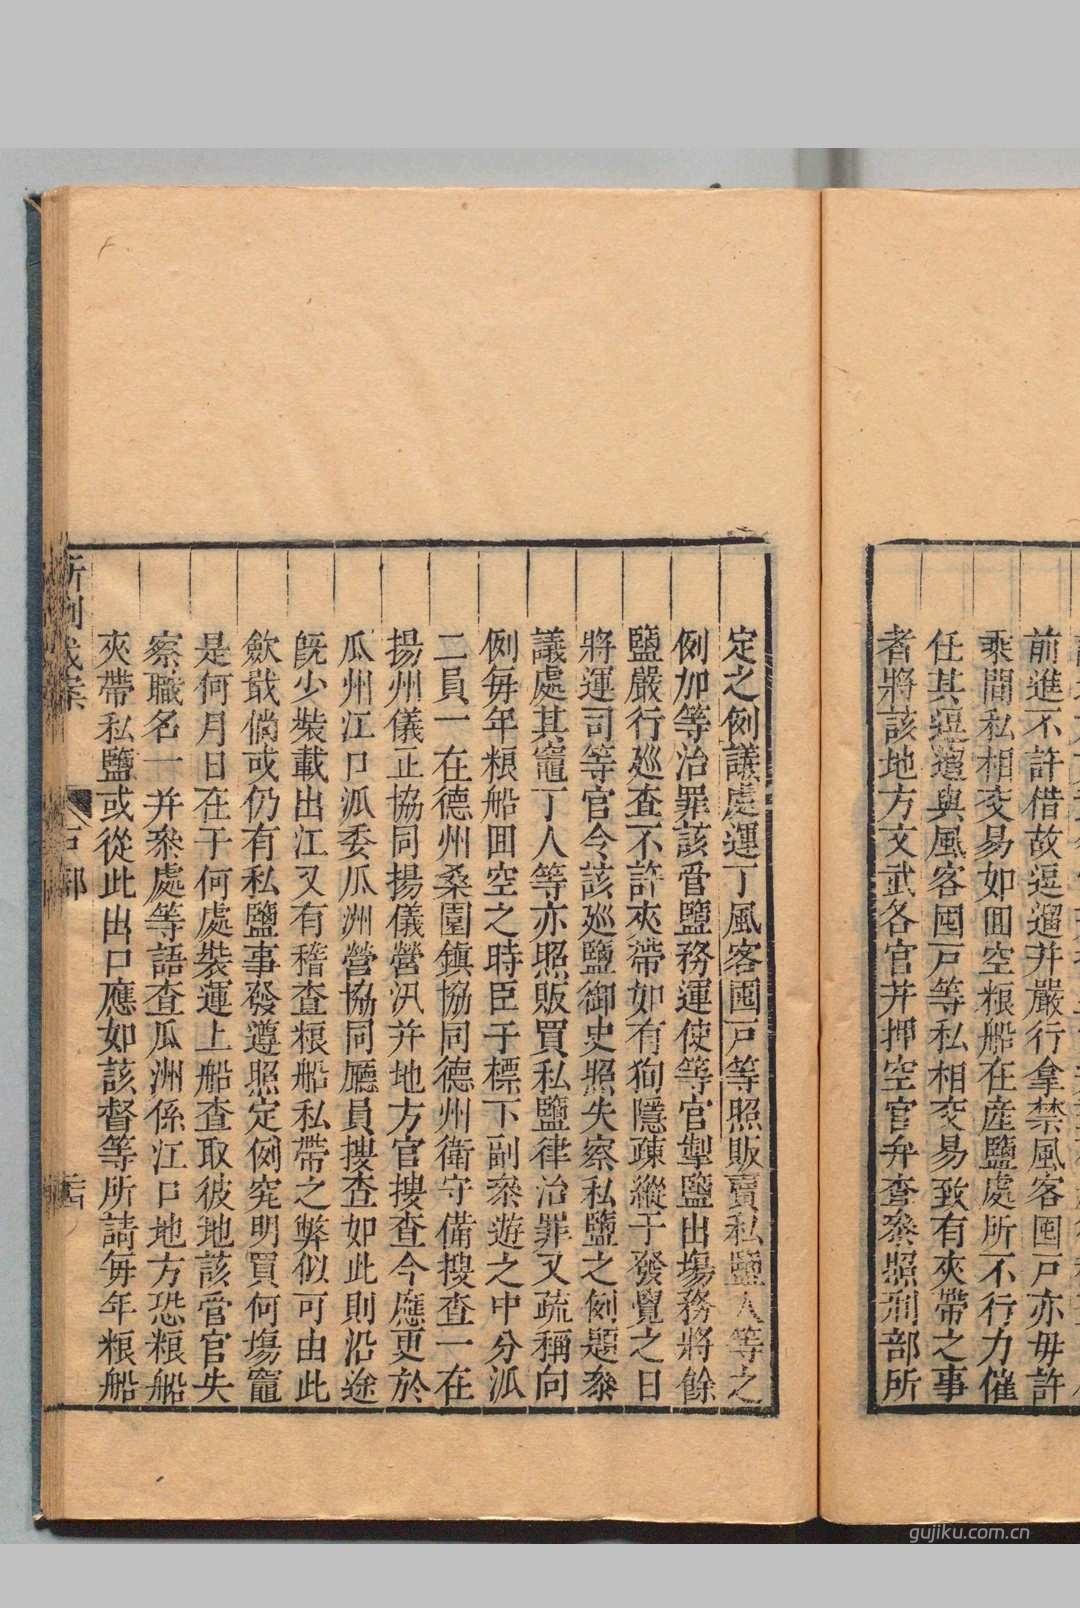 前進不許借故逗遛并嚴行拿禁風客囤戸亦毋許
乗間私相交易如囬空粮船在産鹽處所不行力催
任其逗遛與風客囤戸等私相交易致有夾帶之事
者將該地方文武各官并押空官弁查叅照刑部所
定之例議處運丁風客囤戸等照販賣私鹽人等之
例加等治罪該管鹽務運使等官掣鹽出塲務將餘
鹽嚴行廵查不許夾帶如有狥隱疎縱于發覺之日
將運司等官令該廵鹽御史照失察私鹽之例題叅
議處其竈丁人等亦照販買私鹽律治罪又疏稱向
例毎年粮船囬空之時臣于標下副叅遊之中分派
二員一在德州桑園鎮協同德州衛守備搜查一在
揚州儀正協同揚儀營汛并地方官搜查今應更於
瓜州江口派委瓜洲營協同廳員搜查如此則沿途
旣少裝載出江又有稽查粮船私帶之弊似可由此
歛戢倘或仍有私鹽事發遵照定例究明買何塲竈
是何月日在于何處裝運上船查取彼地該管官失
察職名一并叅處等語查瓜洲係江口地方恐粮船
夾帶私鹽或從此出口應如該督等所請毎年粮船
戸部
gujiku.com.cn